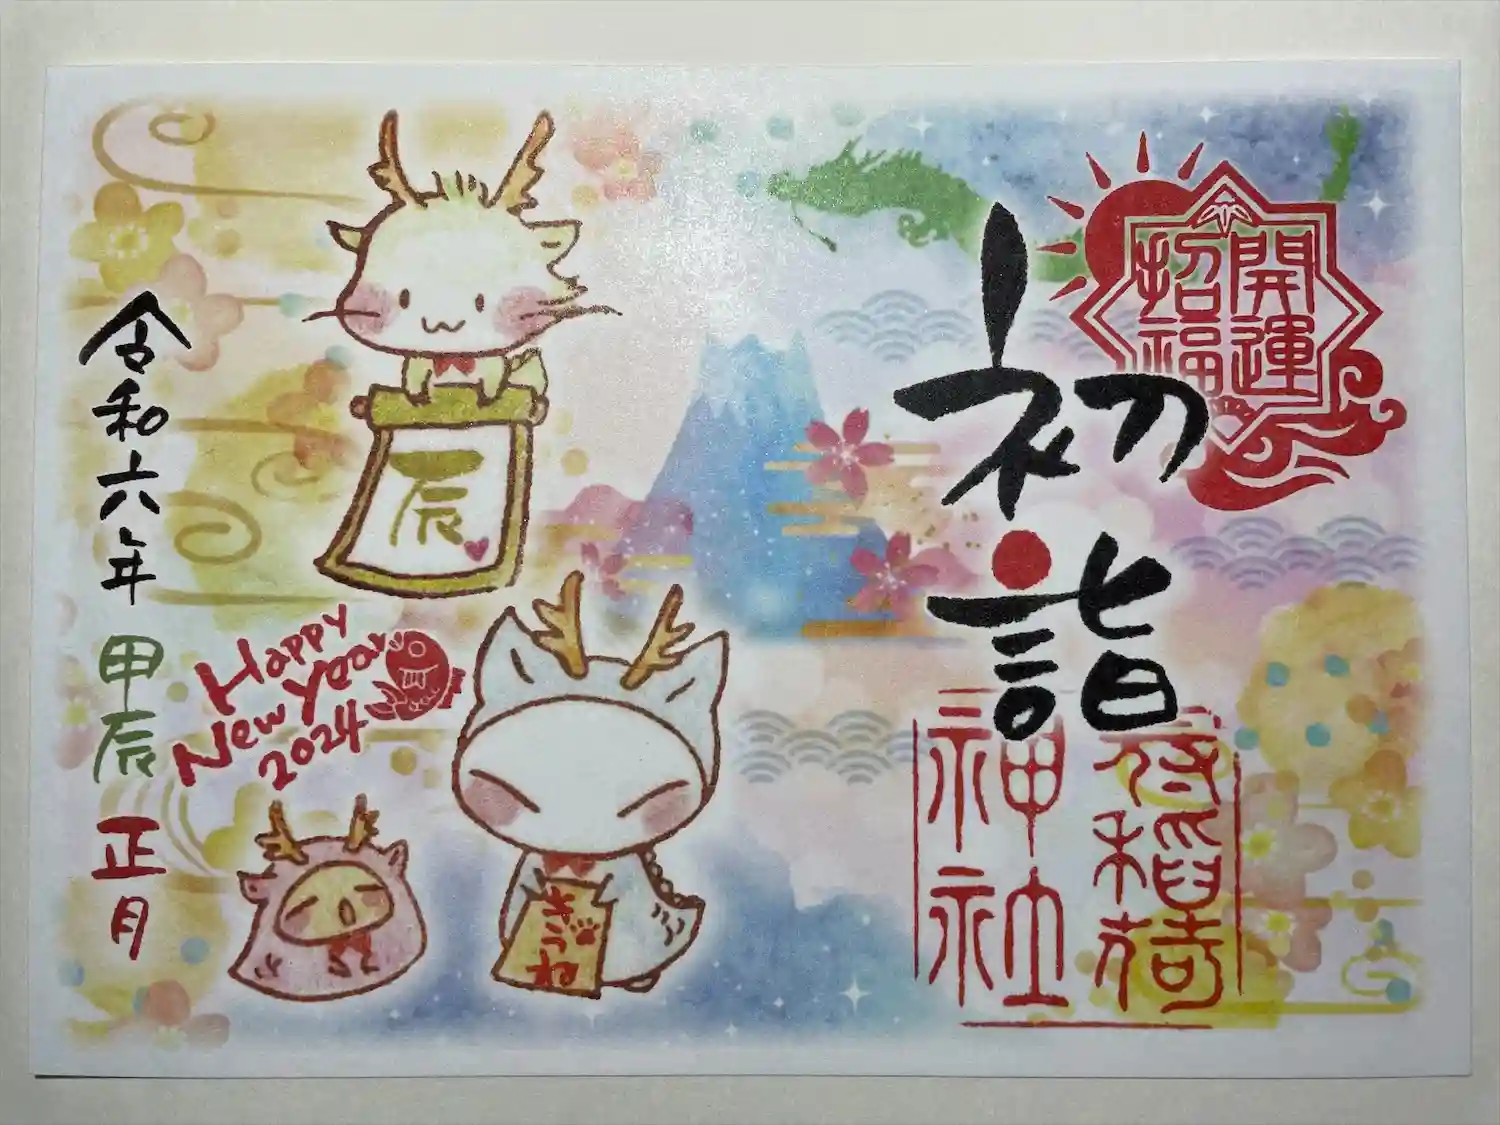 開運
招福
初詣
稲荷
神社
辰
令和六年 甲辰 正月
Happy
New Year
2024
きつね